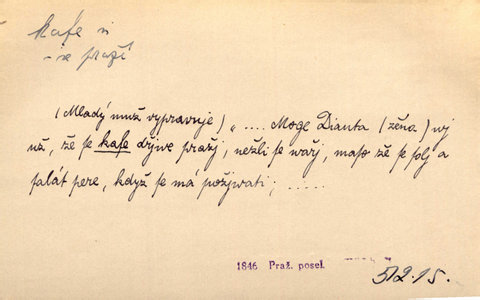 kafe n
- se praží
(Mladý muž vypravuge) „ .... Moge Dianta (žěna) wj
už, že se kafe dřjwe pražj, nežli se wařj, maso že se solj a
salát pere, když se má požjwati; .....
1846 Praž. posel.
512.15.